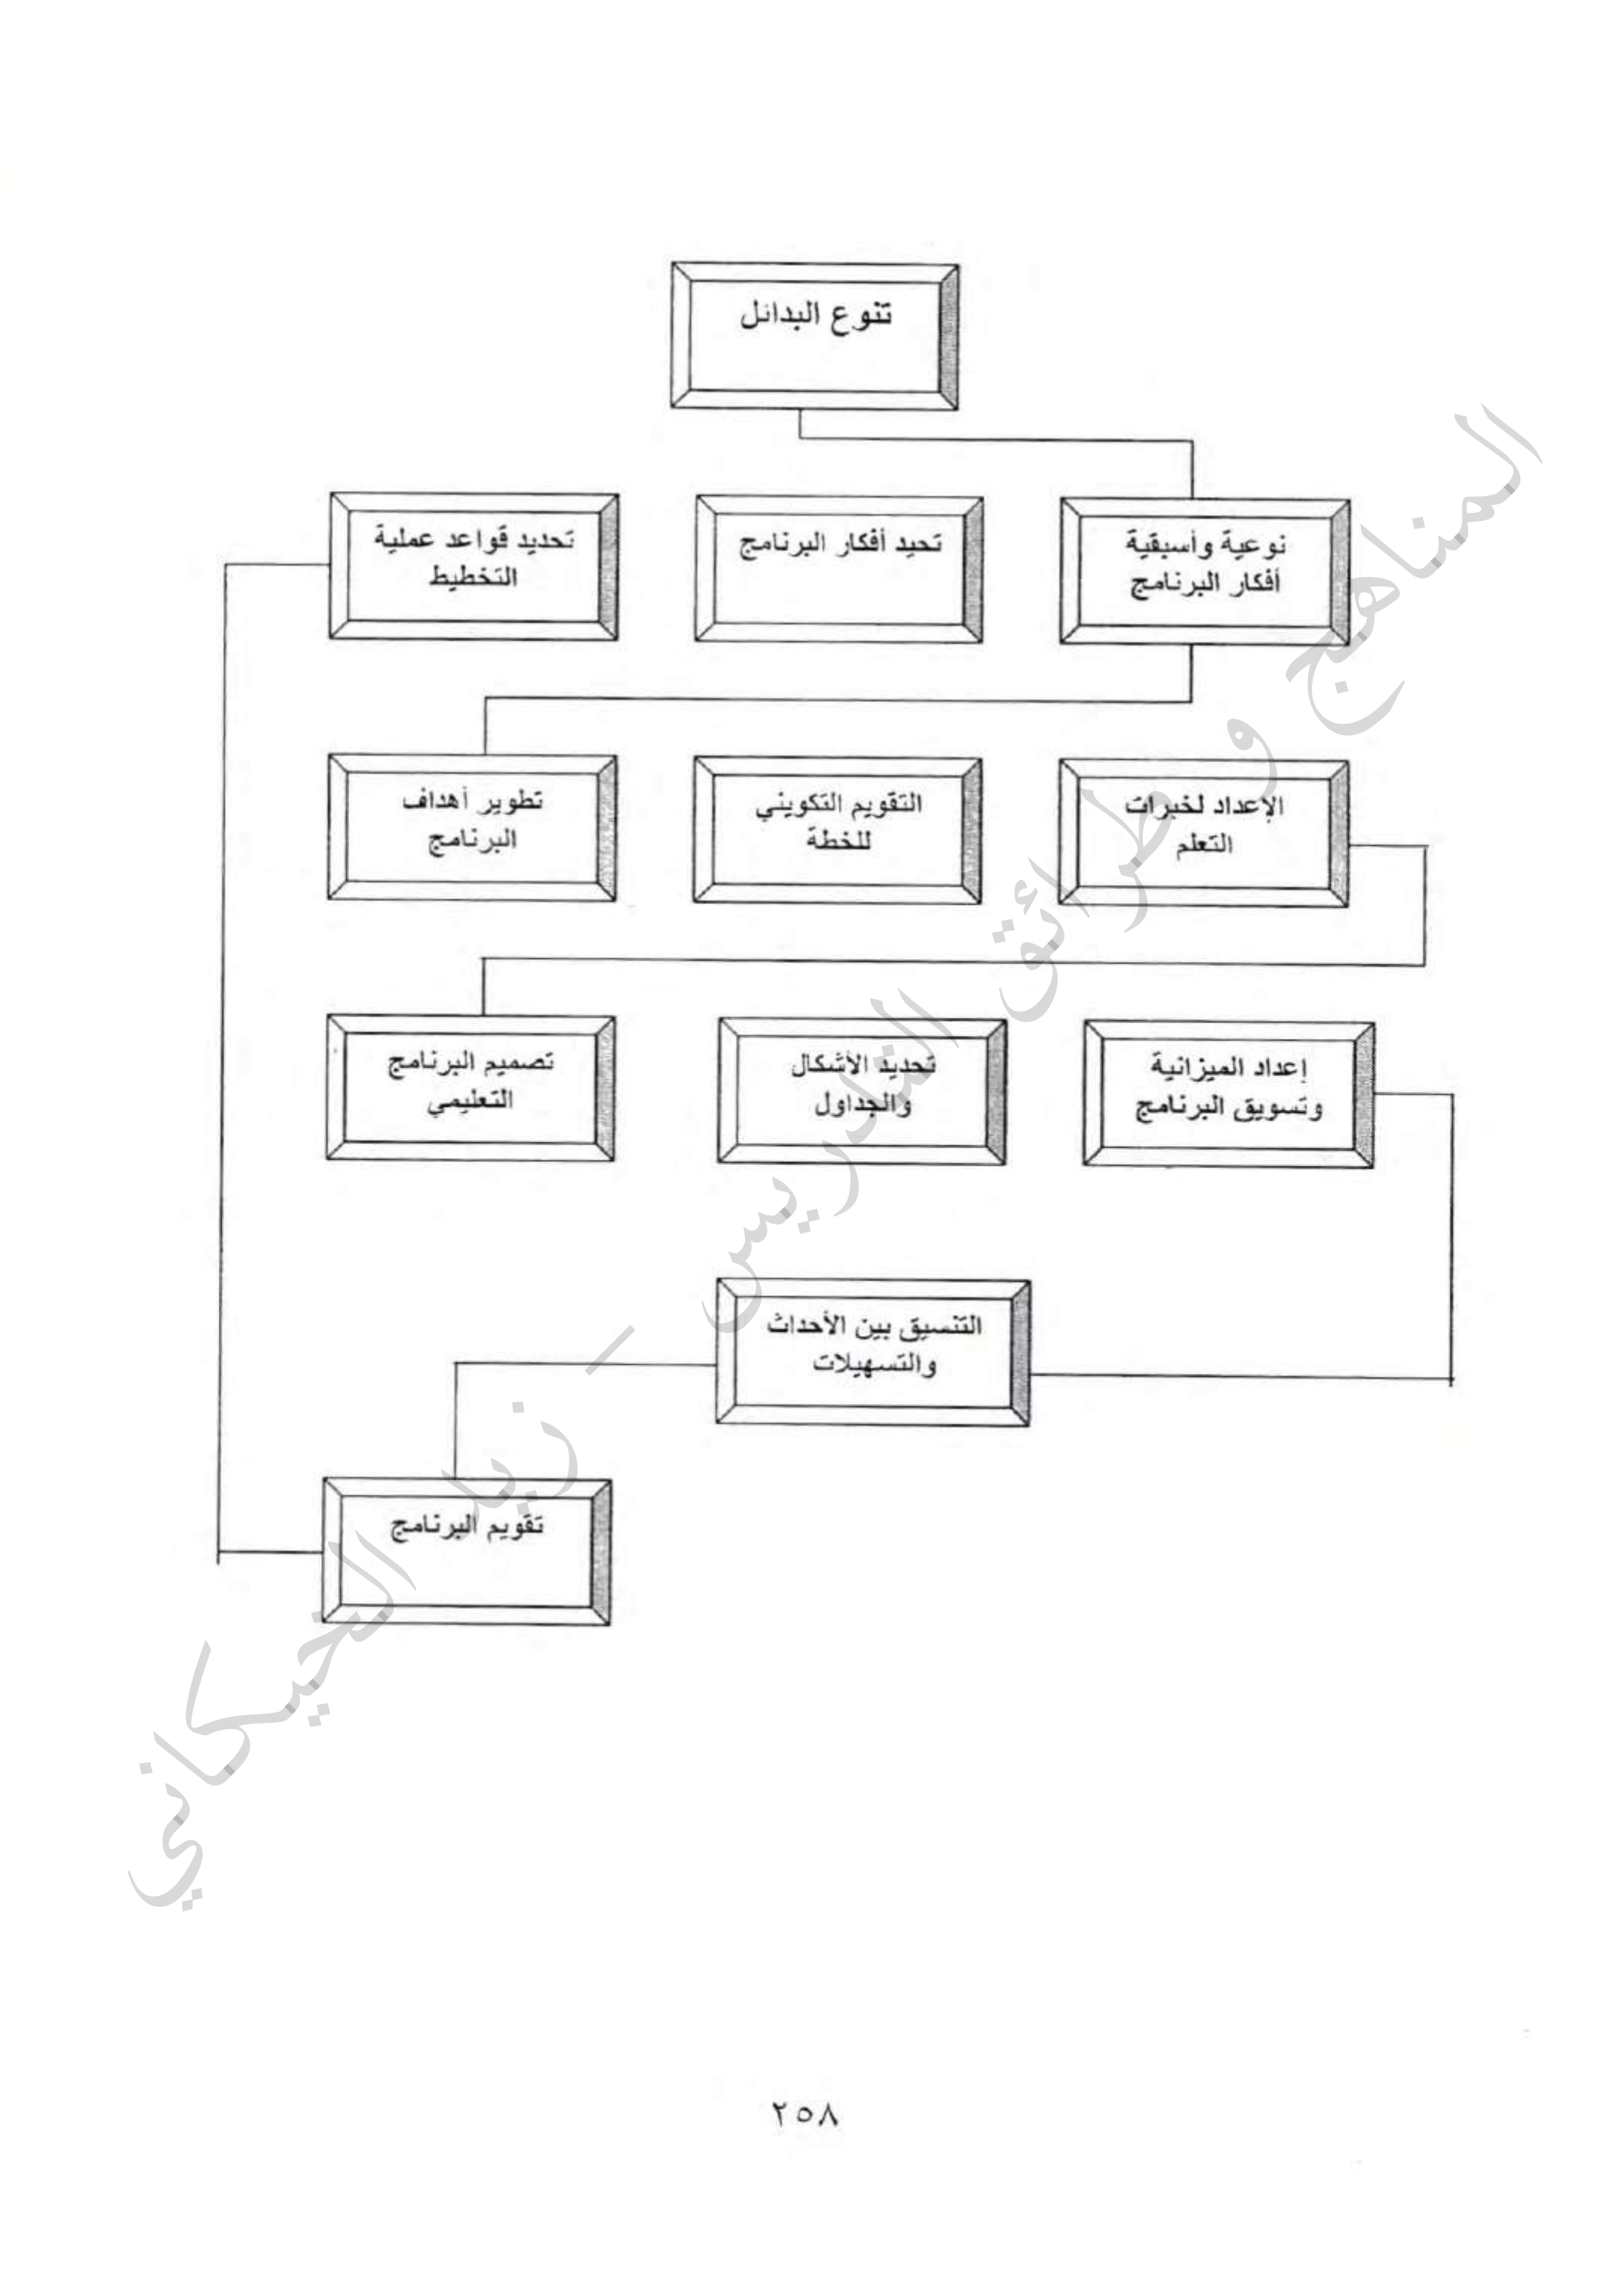 تنوع البدائل
نوعية وأسبقية
أفكار البرنامج
تحيد أفكار البرنامج
تحديد قواعد عملية
التخطيط
الإعداد لخبرات
التعلم
التقويم التكويني
للخطة
تطوير أهداف
البرنامج
إعداد الميزانية
وتسويق البرنامج
تحديد الأشكال
والجداول
تصميم البرنامج
التعليمي
التنسيق بين الأحداث
والتسهيلات
تقويم البرنامج
المناهج و طرائق التدريس - زيد الخيكاني
٢٥٨